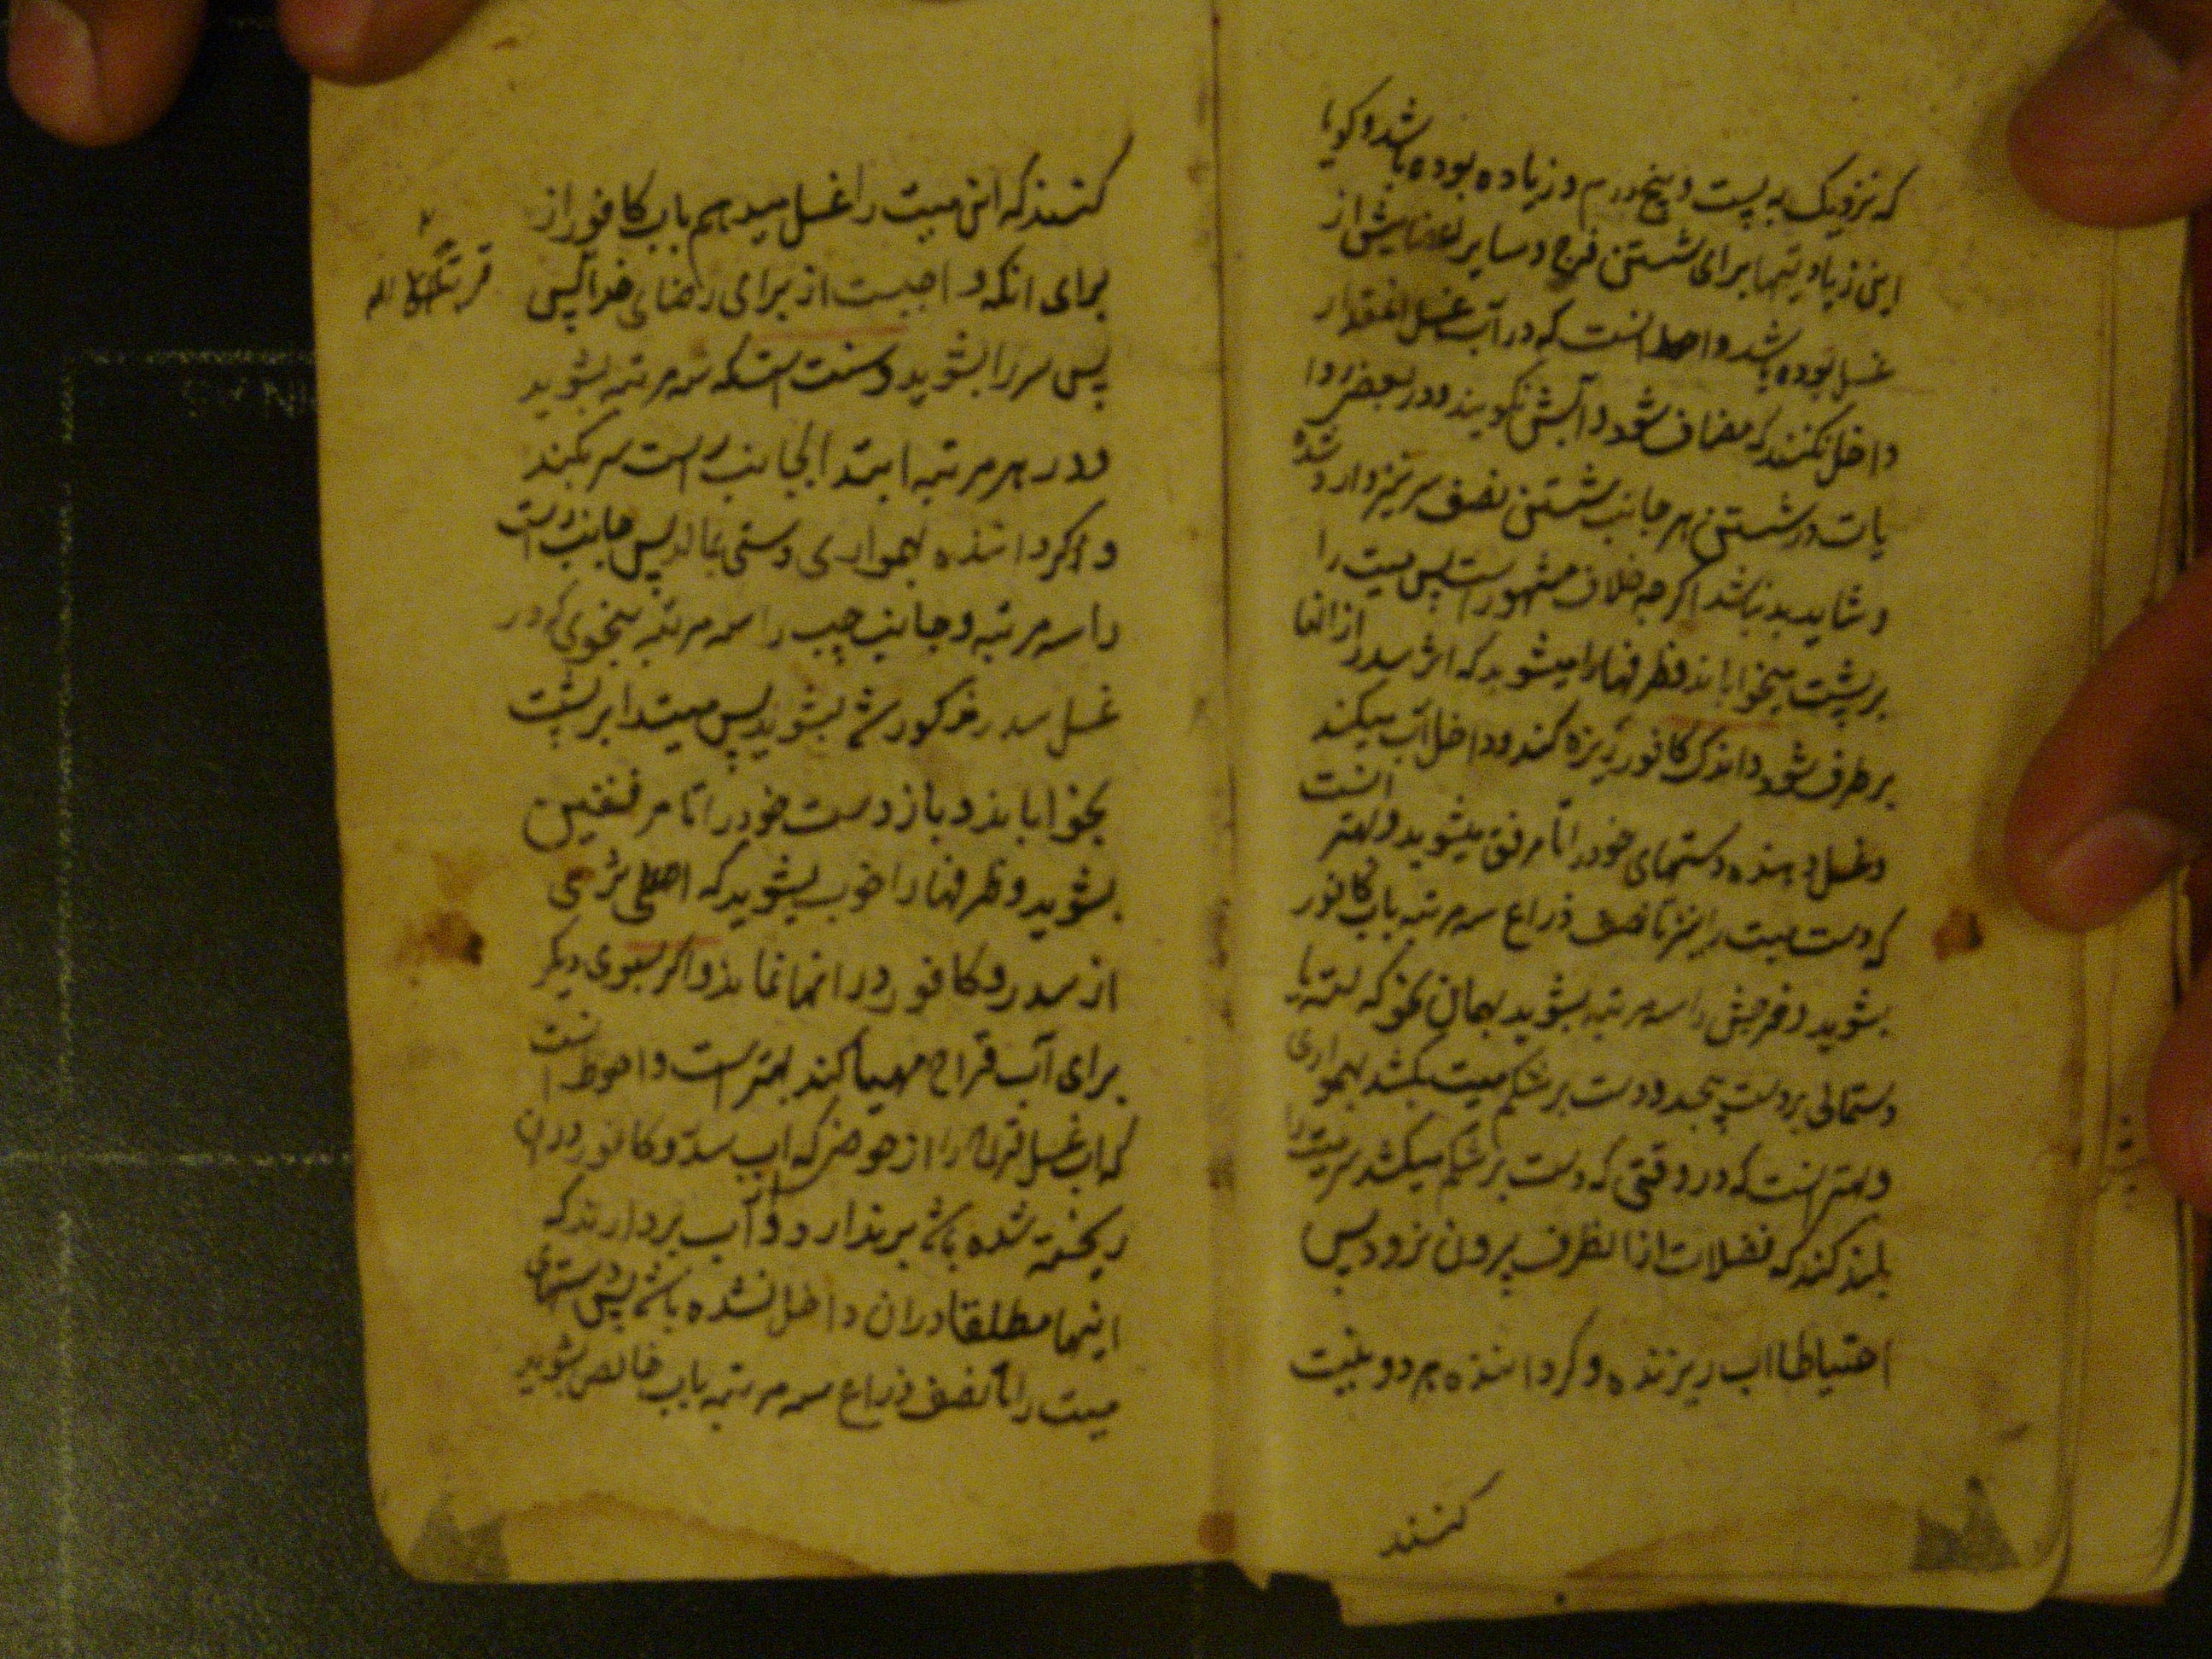 که نزدیک به بیست و پنج درم و زیاده بوده باشد و کویا
این زیادتیها برای شستن فرج و سایر اعضایش از
غسل بوده باشد و احوط انست که در آب غسل انقدار
داخل نکنند که مضاف شود و آبش نکویند و در بعضی روا
یات در شستن هر جانب شستن نصف سر نیز وارد شده
و شاید بد نباشد اکرچه خلاف مشهور است پس میت را
بر پشت میخواباند و ظرفها را میشوید که اثر سدر از انها
بر طرف شود و اندک کافور ریزه کند و داخل آب میکند
و غسل دهنده دستهای خود را تا مرفق میشوید و بهتر انست
که دست میت را نیز تا نصف ذراع سه مرتبه باب کافور
بشوید و فرجش را سه مرتبه بشوید بهمان نحو که لته یا
دستمالی بردست پیچد و دست بر شکم میت بکشد بهمواری
و بهتر انست که در وقتی که دست بر شکم میکشد سر میت را
بلند کند که فضلات از انطرف بیرون نرود پس
احتیاطا اب ریزنده و کرداننده هر دو نیت
کنند
کنند که این میت را غسل میدهم باب کافور از
برای انکه واجبست از برای رضای خدا پس
قربة الی الله
پس سر را بشوید و سنت است که سه مرتبه بشوید
و در هر مرتبه ابتدا بجانب راست سر بکند
و کرداننده بهمواری دستی بمالد پس جانب راست
را سه مرتبه و جانب چپ را سه مرتبه بنحوی که در
غسل سدر مذکور شد بشوید پس میت را بر پشت
بخواباند و باز دست خود را تا مرفقین
بشوید و ظرفها را خوب بشوید که اصلا اثری
از سدر و کافور در انها نماند و اکر سبوی دیکر
برای آب قراح مهیا کند بهتر است و احوط انست
که اب غسل قراح را از حوضی که اب سدر و کافور در ان
ریخته شده باشد برندارد و آب بردارند که
اینها مطلقا دران داخل نشده باشد پس دستهای
میت را تا نصف ذراع سه مرتبه باب خالص بشوید